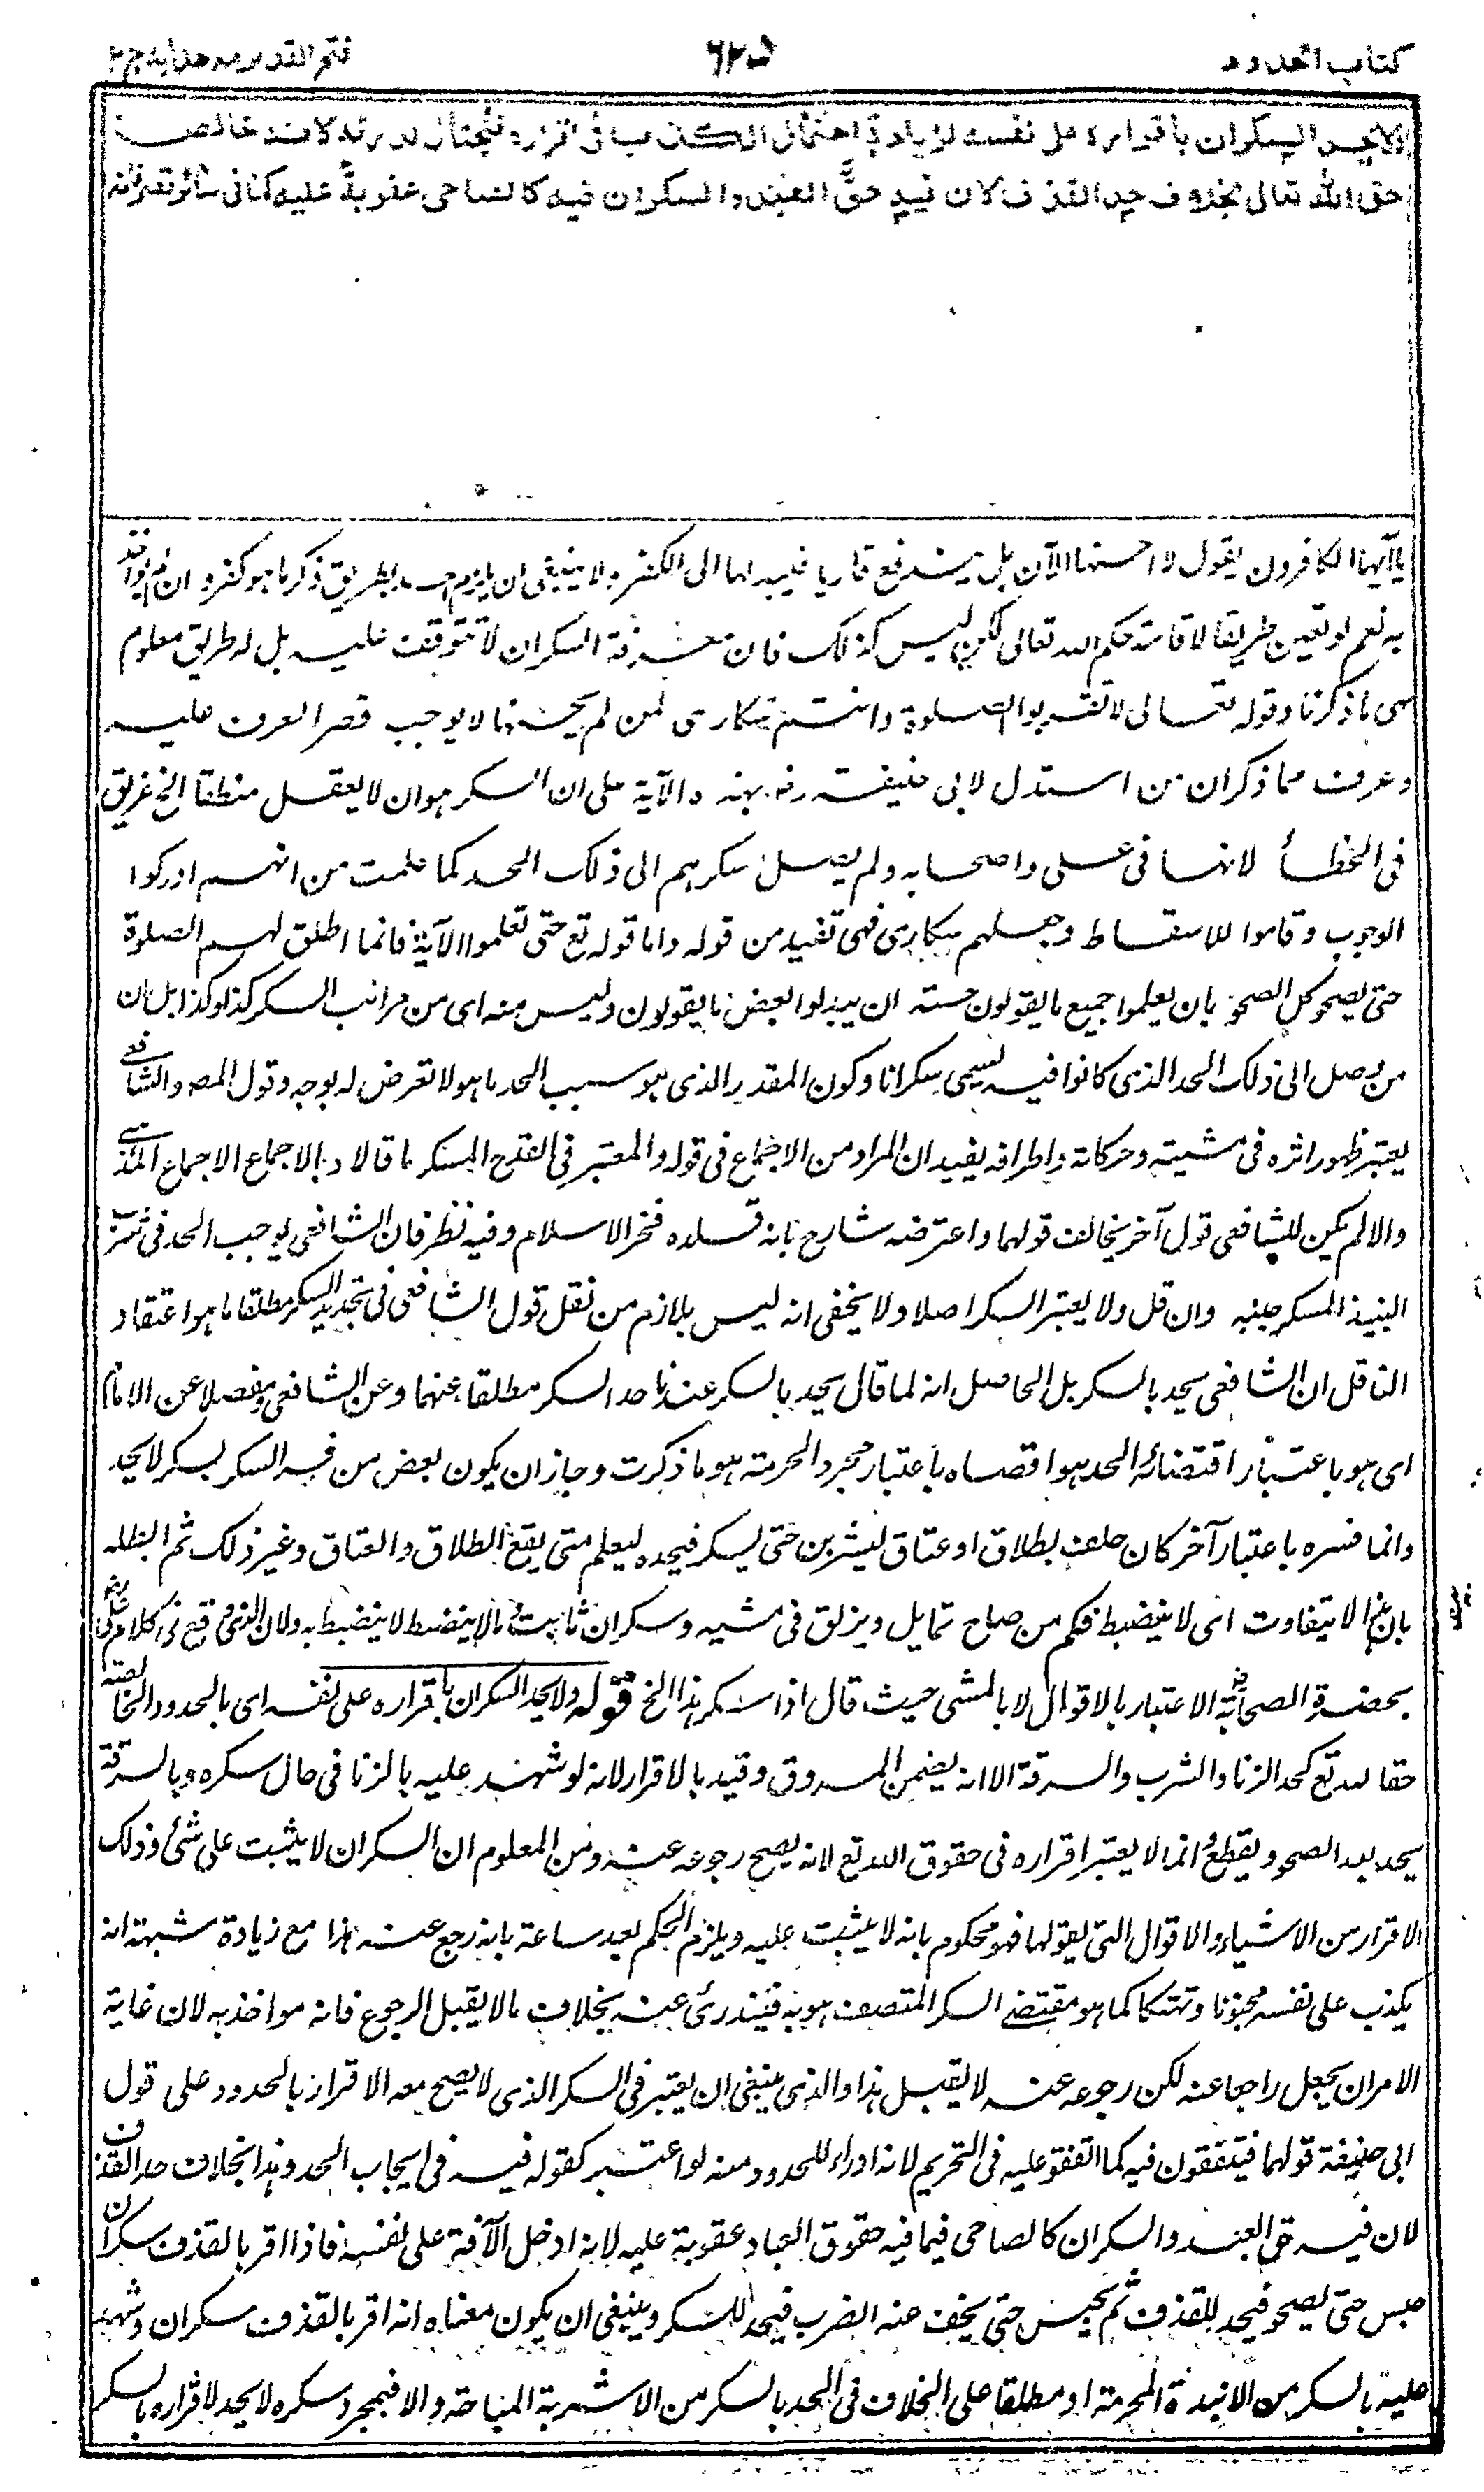 كتاب الحدود
٦٢٥
فتح القدير مع هداية ج ٢
ولا يحد السكران باقراره على نفسه لزيادة احتمال الكذب في اقراره فيحتال لدرئه لانه خالص
حق الله تعالى بخلاف حد القذف لان فيه حق العبد والسكران فيه كالصاحي عقوبة عليه كما في سائر تصرفاته
يا ايها الكافرون يقول لا احسنها الآن بل يندفع قاريا فيبدلها الى الكفر ولا ينبغي ان يلزم احد بطريق ذكر ما هو كفر وان لم يؤاخذ
به نعم لو تعين طريقا لاقامة حكم الله تعالى لكن ليس كذلك فان معرفة السكران لا تتوقف عليه بل له طريق معلوم
هي ما ذكرنا وقوله تعالى لا تقربوا الصلوة وانتم سكارى لمن لم يحسنها لا يوجب قصر العرف عليه
وعرفت مما ذكر ان من استدل لابي حنيفة رضـ بهذه الآية على ان السكر هو ان لا يعقل منطقا الخ غريق
في الخطأ لانها في علي واصحابه ولم يصل سكرهم الى ذلك الحد كما علمت من انهم ادركوا
الوجوب وقاموا للاسقاط وجعلهم سكارى فهي تفيد من قوله واما قوله تع حتى تعلموا الآية فانما اطلق لهم الصلوة
حتى يصحو كل الصحو بان يعلموا جميع ما يقولون خشية ان يبدلوا بعض ما يقولون وليس منه اى من مراتب السكر كذا وكذا بل ان
من وصل الى ذلك الحد الذي كانوا فيه يسمى سكرانا وكون المقدر الذي هو سبب الحد ما هو لا تعرض له بوجه وقول المص والشافعي
يعتبر ظهور اثره في مشيته وحركاته واطرافه يفيد ان المراد من الاجماع في قوله والمعتبر في القدح المسكر ما قالا بالاجماع الاجماع المذهبي
والا لم يكن للشافعي قول آخر يخالف قولهما واعترضه شارح بانه قلده فخر الاسلام وفيه نظر فان الشافعي يوجب الحد في شرب
النبيذ المسكر جنبه وان قل ولا يعتبر السكر اصلا ولا يخفى انه ليس بلازم من نقل قول الشافعي في تحديد السكر مطلقا ما هو اعتقاد
الناقل ان الشافعي يحد بالسكر بل الحاصل انه لما قال يحد بالسكر عندنا حد السكر مطلقا عنهما وعن الشافعي ومفصلا عن الامام
اى هو باعتبار اقتضائه الحد هو اقصاه باعتبار مجرد الحرمة هو ما ذكرت وجاز ان يكون بعض من فسر السكر بسكر لا يحد
وانما فسره باعتبار آخر كان حلف بطلاق او عتاق ليشربن حتى يسكر فيحده ليعلم متى يقع الطلاق والعتاق وغير ذلك ثم ابطله
بان هذا يتفاوت اى لا ينضبط فكم من صاح تمايل ويزلق في مشيه وسكران ثابت وما لا ينضبط لا يضبط به ولان الذي وقع في كلام علي رضـ
بحضرة الصحابة الاعتبار بالاقوال لا بالمشي حيث قال اذا سكر هذا الخ قوله ولا يحد السكران باقراره على نفسه اى بالحدود الخالصة
حقا لله تع كحد الزنا والشرب والسرقة الا انه يضمن المسروق وقيد بالاقرار لانه لو شهد عليه بالزنا في حال سكره وبالسرقة
يحد بعد الصحو ويقطع وانما لا يعتبر اقراره في حقوق الله تع لانه يصح رجوعه عنه ومن المعلوم ان السكران لا يثبت على شئ وذلك
الاقرار من الاشياء والاقوال التي يقولها فهو محكوم بانه لا يثبت عليه ويلزم الحكم بعد ساعة بانه رجع عنه هذا مع زيادة شبهة انه
يكذب على نفسه مجونا وتهتكا كما هو مقتضى السكر المتصف هو به فيندرئ عنه بخلاف ما لا يقبل الرجوع فانه مواخذ به لان غاية
الامر ان يجعل راجعا عنه لكن رجوعه عنه لا يقبل هذا والذي ينبغي ان يعتبر في السكر الذي لا يصح معه الاقرار بالحدود على قول
ابي حنيفة قولهما فيتفقون فيه كما اتفقوا عليه في التحريم لانه ادرأ للحدود منه لو اعتبر كقوله فيه في ايجاب الحد وهذا بخلاف حد القذف
لان فيه حق العبد والسكران كالصاحي فيما فيه حقوق العباد عقوبة عليه لانه ادخل الآفة على نفسه فاذا اقر بالقذف سكران
حبس حتى يصحو فيحد للقذف ثم يحبس حتى يخف عنه الضرب فيحد للسكر وينبغي ان يكون معناه انه اقر بالقذف سكران وشهد
عليه بالسكر من الانبذة المحرمة او مطلقا على الخلاف في الحد بالسكر من الاشربة المباحة والا فبمجرد سكره لا يحد لاقراره بالسكر